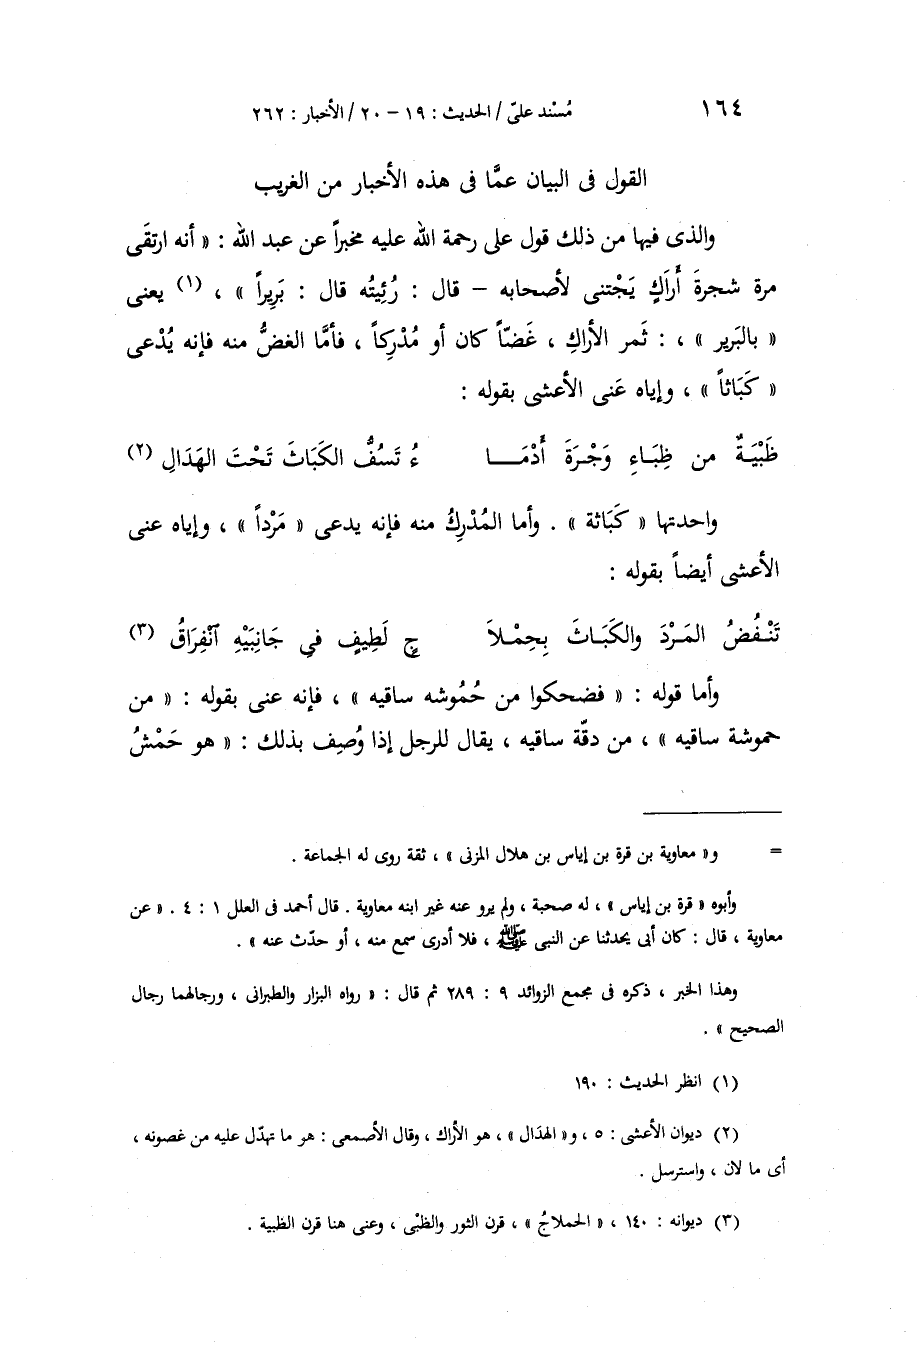 ١٦٤ مُسْند علىّ / الحديث : ١٩ – ٢٠ / الأخبار : ٢٦٢
القول فى البيان عمَّا فى هذه الأخبار من الغريب
والذى فيها من ذلك قول على رحمة الله عليه مخبراً عن عبد الله : « أنه ارتقَى
مرة شجرةَ أَراَكٍ يَجْتنى لأصحابه – قال : رُئِيتُه قال : بَرِيراً » ، (١) يعنى
« بالبَرير » ، : ثَمر الأراكِ ، غَضّاً كان أو مُدْرِكاً ، فأمَّا الغضُّ منه فإنه يُدْعى
« كَبَاثاً » ، وإياه عَنى الأعشى بقوله :
ظَبْيَةٌ من ظِبَاءِ وَجْرَةَ أَدْمَا ءُ تَسُفُّ الكَبَاثَ تَحْتَ الهَدَالِ (٢)
واحدتها « كَبَاثة » . وأما المُدْرِكُ منه فإنه يدعى « مَرْداً » ، وإياه عنى
الأعشى أيضاً بقوله :
تَنْفُضُ المَرْدَ والكَبَاثَ بِحِمْلاَ جٍ لَطِيفٍ في جَانِبَيْهِ آنْفِرَاقُ (٣)
وأما قوله : « فضحكوا من حُمُوشه ساقيه » ، فإنه عنى بقوله : « من
حموشة ساقيه » ، من دقّة ساقيه ، يقال للرجل إذا وُصِف بذلك : « هو حَمْشُ
= و« معاوية بن قرة بن إياس بن هلال المزنى » ، ثقة روى له الجماعة .
وأبوه « قرة بن إياس » ، له صحبة ، ولم يرو عنه غير ابنه معاوية . قال أحمد فى العلل ١ : ٤ . « عن
معاوية ، قال : كان أبى يحدثنا عن النبى ﷺ ، فلا أدرى سمع منه ، أو حدّث عنه » .
وهذا الخبر ، ذكره فى مجمع الزوائد ٩ : ٢٨٩ ثم قال : « رواه البزار والطبرانى ، ورجالهما رجال
الصحيح » .
(١) انظر الحديث : ١٩٠
(٢) ديوان الأعشى : ٥ ، و« الهدَال » ، هو الأراك ، وقال الأصمعى : هو ما تهدّل عليه من غصونه ،
أى ما لان ، واسترسل .
(٣) ديوانه : ١٤٠ ، « الحملاجُ » ، قرن الثور والظبْى ، وعنى هنا قرن الظبية .